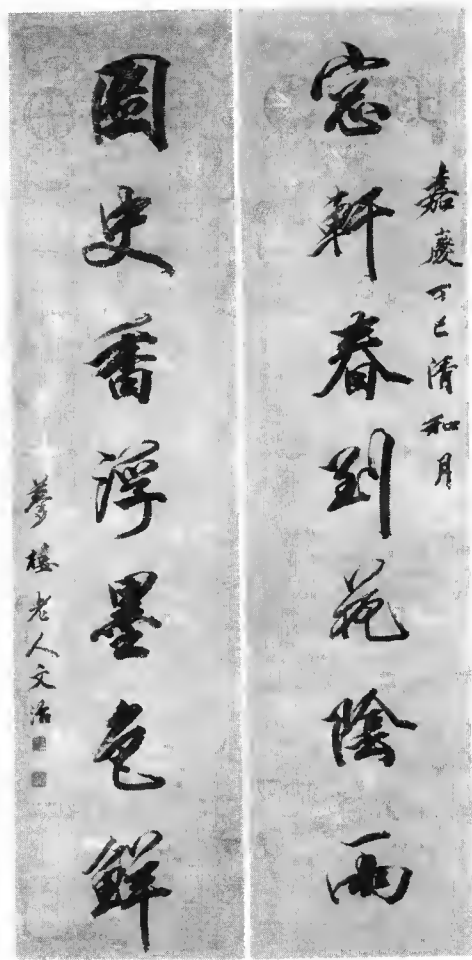 嘉慶丁巳清和月
窓軒春到花陰雨
圖史香浮墨色鮮
夢樓老人文治